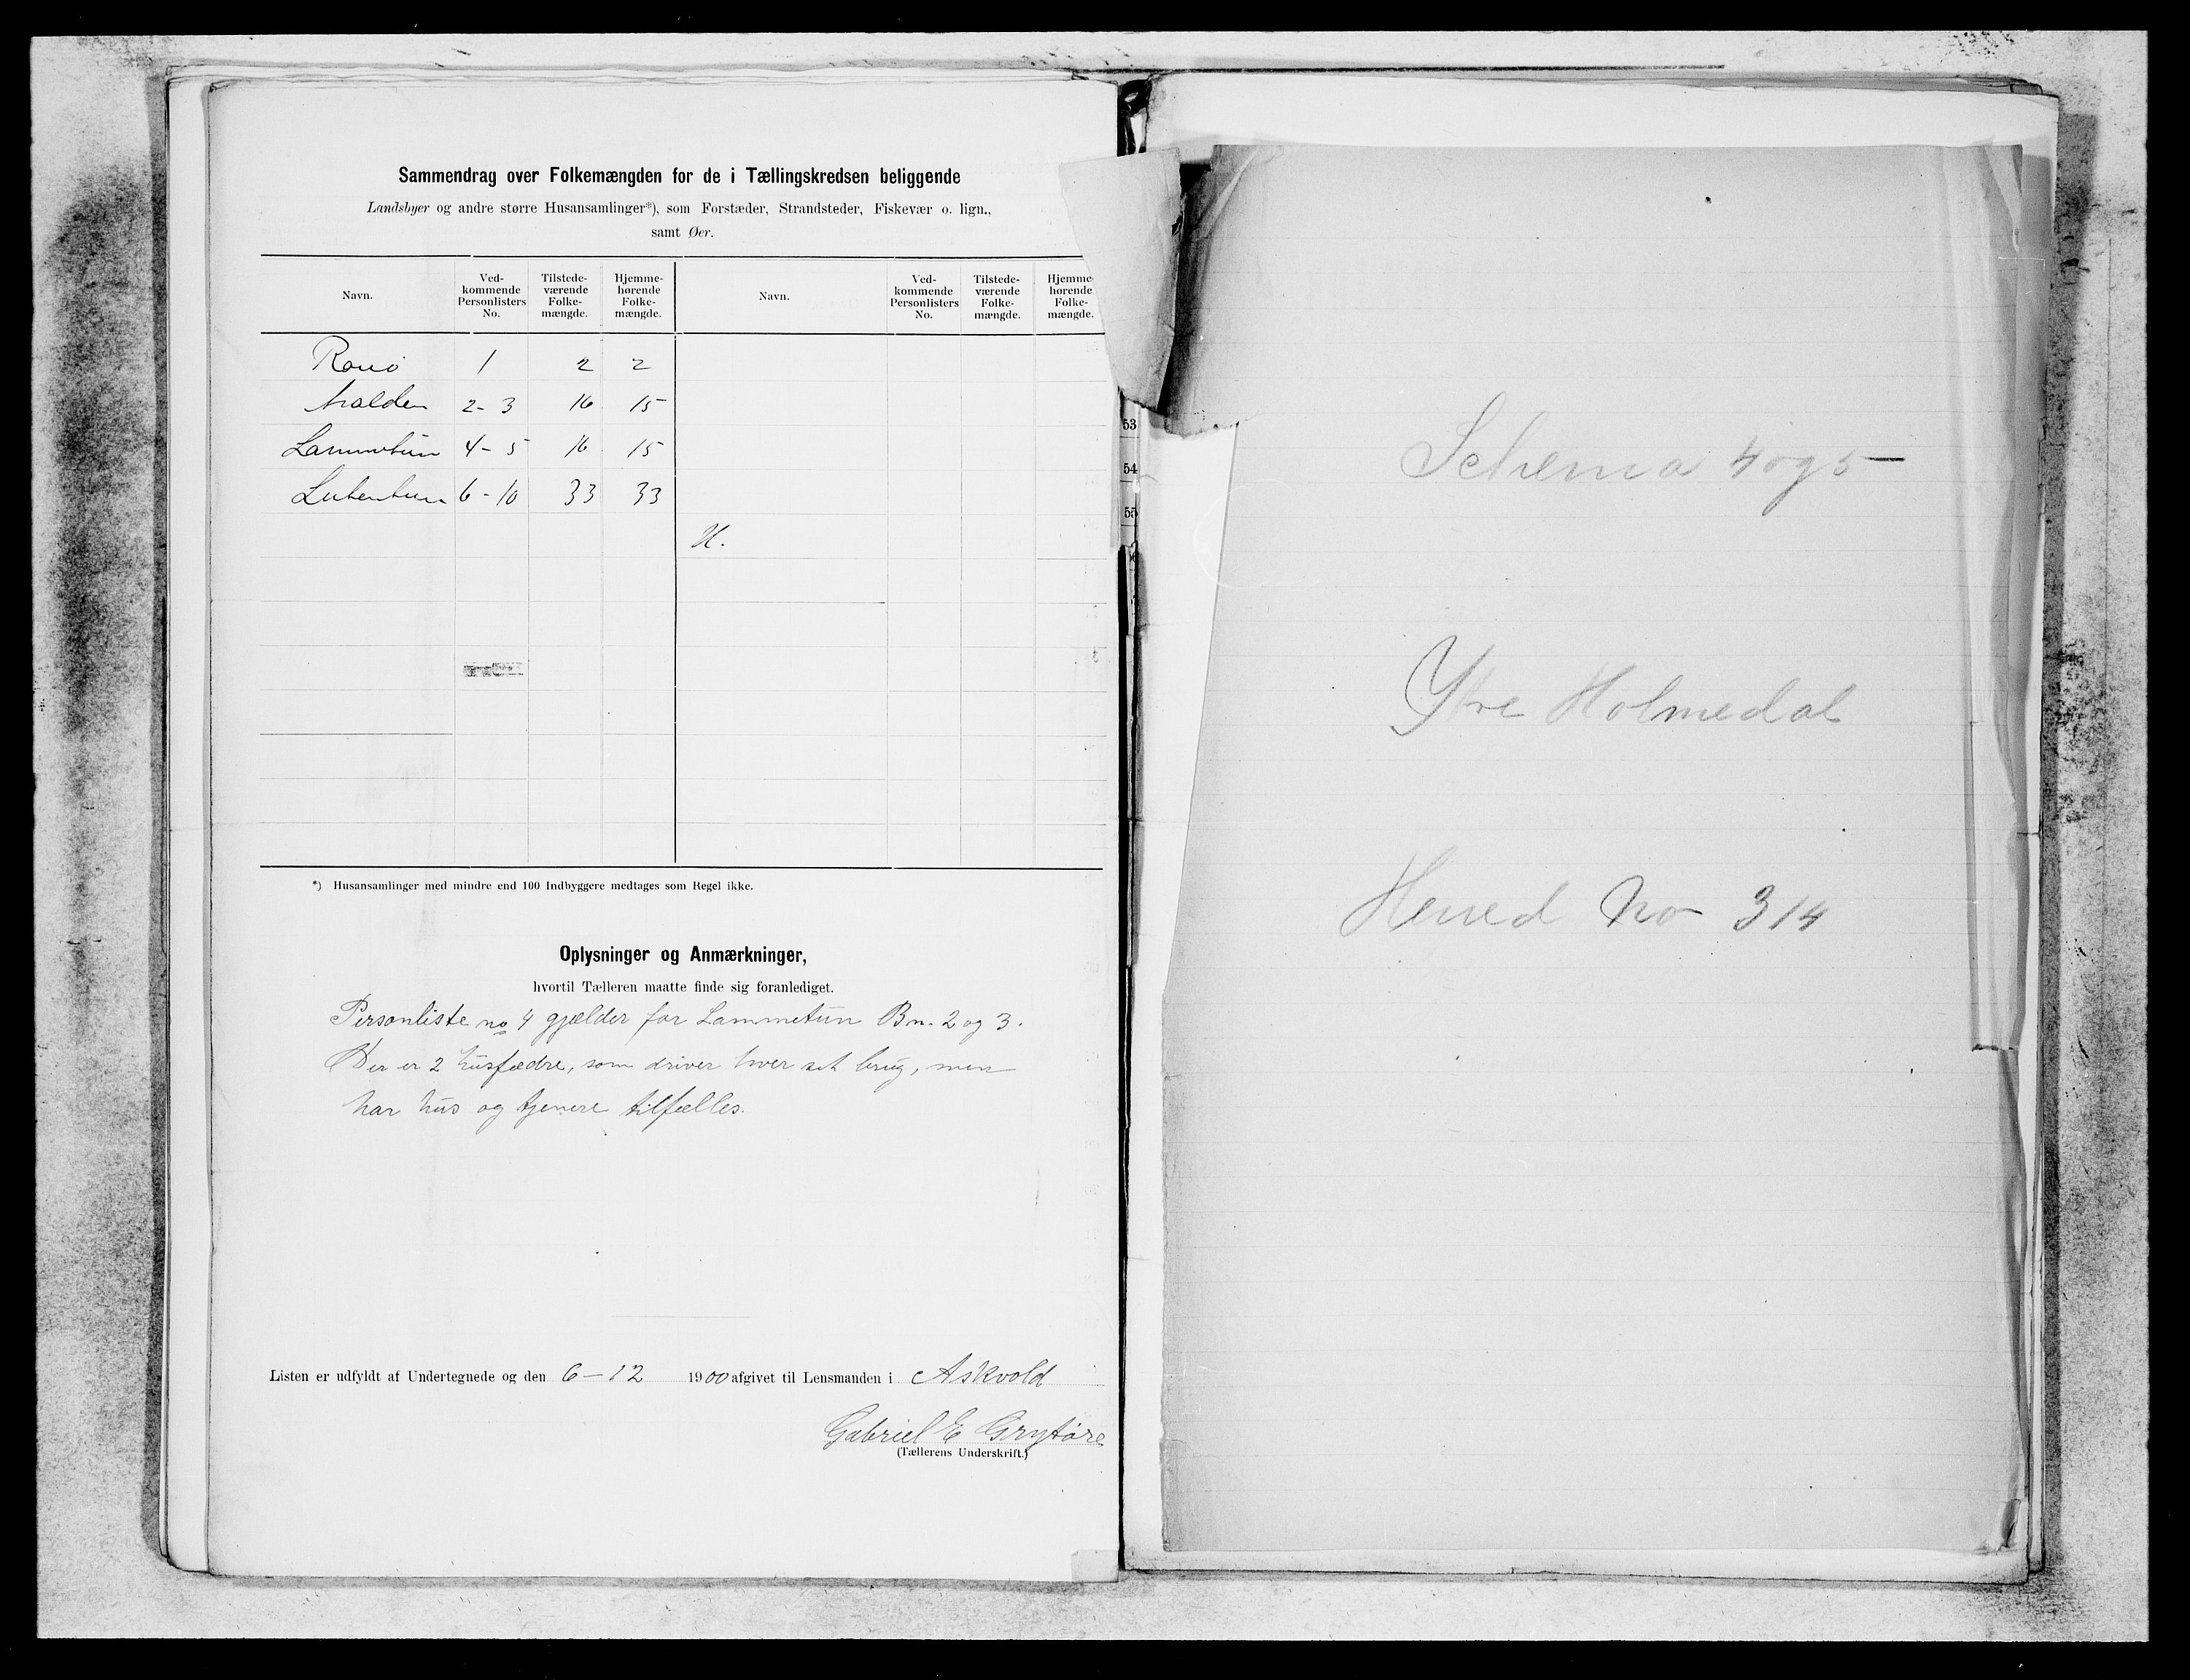 Sammendrag over Folkemængden for de i Tællingskredsen beliggende
Landsbyer og andre større Husansamlinger*), som Forstæder, Strandsteder, Fiskevær o. lign.,
samt Øer.
Navn. Ved-kommende Personlisters No. Tilstede-værende Folke-mængde. Hjemme-hørende Folke-mængde. Navn. Ved-kommende Personlisters No. Tilstede-værende Folke-mængde. Hjemme-hørende Folke-mængde.
1 2 2
2-3 16 15
Lammetun 4-5 16 15
Lutentun 6-10 33 33
H.
*) Husansamlinger med mindre end 100 Indbyggere medtages som Regel ikke.
Oplysninger og Anmærkninger,
hvortil Tælleren maatte finde sig foranlediget.
Personliste no 4 gjælder for Lammetun Bn. 2 og 3.
Der er 2 husfædre, som driver hver sit brug, men
har hus og tjenere tilfælles.
Listen er udfyldt af Undertegnede og den 6-12 1900 afgivet til Lensmanden i Askvold
Gabriel E Grytøre
(Tællerens Underskrift.)
53
54
55
Schema 4 og 5
Ytre Holmedal
Herred No 314